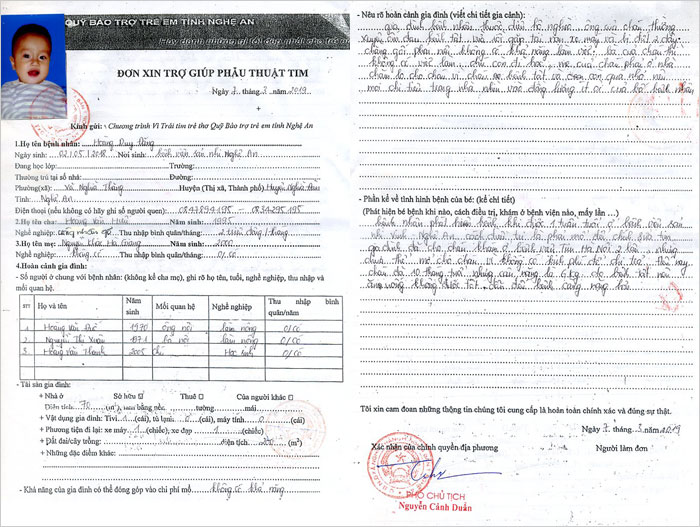 QUỸ BẢO TRỢ TRẺ EM TỈNH NGHỆ AN
ĐƠN XIN TRỢ GIÚP PHẪU THUẬT TIM
Ngày 7 tháng 3 năm 2019
Kính gửi: - Chương trình Vì Trái tim trẻ thơ Quỹ Bảo trợ trẻ em tỉnh Nghệ An
1.Họ tên bệnh nhân: Hoàng Duy Đăng
Ngày sinh: 02/05/2018 Nơi sinh: bệnh viện sản nhi Nghệ An
Đang học lớp: Trường:
Thường trú tại số nhà: Đường:
Phường(xã): Xã Nghĩa Thắng Huyện (Thị xã, Thành phố) Huyện Nghĩa
Tỉnh: Nghệ An
Điện thoại (nếu không có hãy ghi số người quen): 0841894195 - 0834295195
2.Họ tên cha: Hoàng Văn Năm sinh: 1995
Nghề nghiệp: công nhân gỗ Thu nhập bình quân/tháng: 2 triệu đồng/tháng
3.Họ tên mẹ: Nguyễn Khoa Hà Giang Năm sinh: 2000
Nghề nghiệp: không có Thu nhập bình quân/tháng: 0/có
4.Hoàn cảnh gia đình:
- Số người ở chung với bệnh nhân: (không kể cha mẹ), ghi rõ họ tên, tuổi, nghề nghiệp, thu nhập và
mối quan hệ.
STT Họ và tên Năm sinh Mối quan hệ Nghề nghiệp Thu nhập bình quân/năm
1 Hoàng Văn 1970 ông nội làm nông 0/có
2 Nguyễn Thị Xuân 1971 bà nội làm nông 0/có
3 Hoàng Văn Thanh 2005 chú Học sinh 0/có
- Tài sản gia đình:
+ Nhà ở Sở hữu ☑ Thuê ☐ Của người khác ☐
Diện tích 70 (m²), nền bằng tường mái
+ Vật dụng gia đình: Tivi 1 (cái), tủ lạnh 0 (cái), máy tính 0 (cái)
+ Phương tiện đi lại: xe máy 1 (chiếc), xe đạp 1 (chiếc)
+ Đất đai/cây trồng: diện tích 200 (m²)
+ Những đặc điểm khác:
- Khả năng của gia đình có thể đóng góp vào chi phí mổ không có khả năng
- Nêu rõ hoàn cảnh gia đình (viết chi tiết gia cảnh):
gia đình bệnh nhân thuộc diện hộ nghèo, ông của cháu thường
xuyên ốm đau bệnh tật và vừa gặp tai nạn xe máy cả bị chết 2 dây
chằng gối phải nên không có khả năng làm việc, bà của cháu thì
không có việc làm, chú còn đi học, mẹ của cháu phải ở nhà
chăm lo cho cháu vì cháu bệnh tật và còn quá nhỏ nên
mọi chi tiêu trong nhà nhìn vào đồng lương ít ỏi của bố bệnh nhân
- Phần kể về tình hình bệnh của bé: (kể chi tiết)
(Phát hiện bé bệnh khi nào, cách điều trị, khám ở bệnh viện nào, mấy lần …)
bệnh nhân phát hiện bệnh khi được 1 tuần tuổi ở bệnh viện sản
nhi tỉnh Nghệ An cách điều trị là phải mổ để chỉnh sửa tim
gia đình đã cho cháu khám ở bệnh viện Tim Hà Nội 2 lần nhưng
chưa thể mổ cho cháu vì không có kinh phí để chi trả, thế nay
cháu đã 10 tháng tuổi nhưng cân nặng là 6 kg do bệnh tật nên
ăn uống không được tốt dẫn đến bệnh càng nặng hơn
Tôi xin cam đoan những thông tin chúng tôi cung cấp là hoàn toàn chính xác và đúng sự thật.
Ngày 7 tháng 3 năm 2019
Xác nhận của chính quyền địa phương Người làm đơn
PHÓ CHỦ TỊCH
Nguyễn Cảnh Duẩn